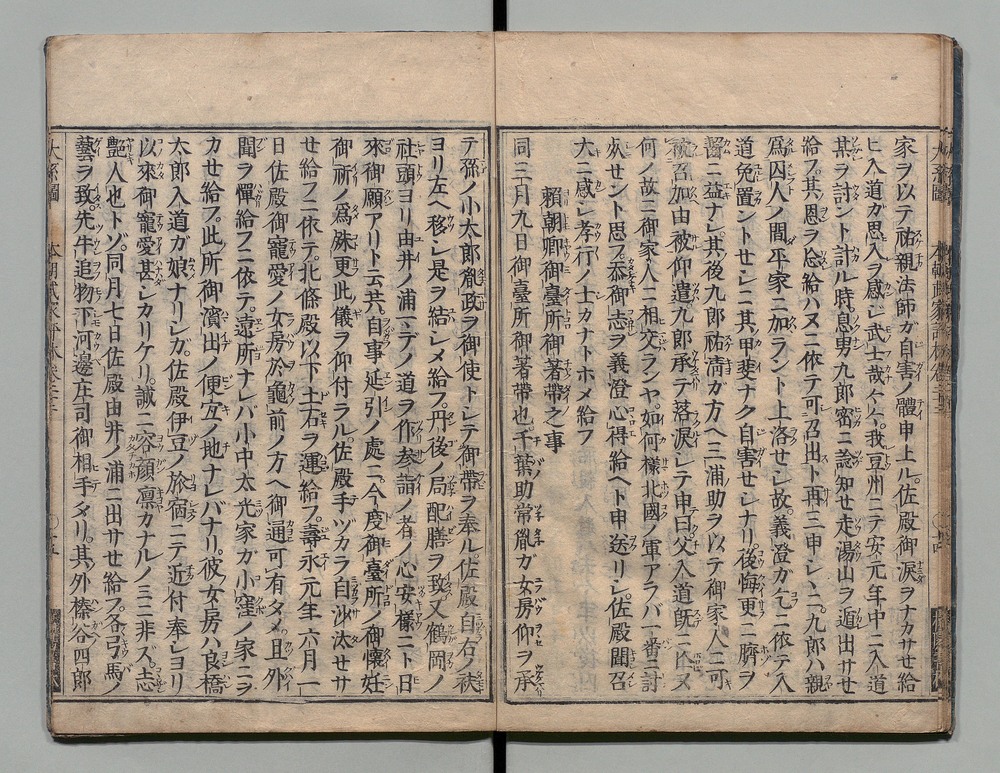 家ヲ以テ祐親法師ガ自害ノ體申上ル。佐殿御淚ヲナカサセ給
ヒ入道ガ思入ヲ感シ武士哉ト。我豆州ニテ安元年中ニ入道
某ヲ討ント計ル時。息男九郎密ニ諗知セ走湯山ヲ遁出サセ
給フ。其恩ヲ忘給ハヌニ依テ可召出ト再三申シヽニ。九郎ハ親
爲囚人ノ間平家ニ加ラント上洛セシ故。義澄カ乞ニ依テ入
道免置ントセシニ其甲斐ナク自害セシナリ。後悔更ニ臍ヲ
噬ニ益ナシ。其後九郎祐淸カ方ヘ三浦助ヲ以テ御家人ニ可
被召加由被仰遣。九郎承テ落淚シテ申曰。父入道既ニ亡又
何ノ故ニ御家人ニ相交ランヤ。如何樣北國ノ軍アラバ一番ニ討
死セント思フ。忝御志ヲ義澄心得給ヘト申送リシ。佐殿聞召
大ニ感シ孝行ノ士カナトホメ給フ
賴朝卿御臺所御著帶之事
同三月九日御臺所御著帶也。千葉助常胤ガ女房仰ヲ承
テ孫ノ小太郎胤政ヲ御使トシテ御帶ヲ奉ル。佐殿自右ノ袂
ヨリ左ヘ移シ是ヲ結シメ給フ。丹後ノ局配膳ヲ致。又鶴岡ノ
社頭ヨリ由井ノ浦マデノ道ヲ作。參詣ノ者ノ心安樣ニト日
來御願アリト云共。自事延引ノ處ニ。今度御臺所ノ御懷妊
御祈ノ爲。殊更此儀ヲ仰付ラル。佐殿手ヅカラ自沙汰セサ
せ給フニ依テ。北條殿以下土石ヲ運給フ。壽永元年六月一
日佐殿御寵愛ノ女房於龜前ノ方ヘ御通可有タメ。且外
聞ヲ憚給フニ依テ。遠所ナレバ小中太光家ガ小窪ノ家ニヲ
カせ給フ。此所御濱出ノ便宜ノ地ナレバナリ。彼女房ハ良橋
太郎入道ガ娘ナリシガ。佐殿伊豆ノ於宿ニテ近付奉シヨリ
以來御寵愛甚シカリケリ。誠ニ容顏凛カナルノミニ非ズ。志
艷人也トゾ。同月七日佐殿由井ノ浦ニ出サセ給フ。各弓馬ノ
藝ヲ致。先牛追物下河邊庄司御相手タリ。其外榛谷四郎